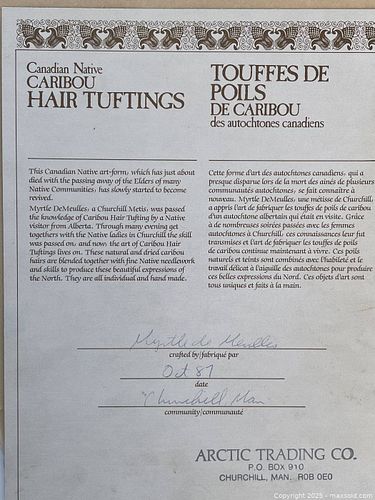 Canadian Native
CARIBOU
HAIR TUFTINGS
This Canadian Native art-form, which has just about
died with the passing away of the Elders of many
Native Communities, has slowly started to become
revived.
Myrtle DeMeulles, a Churchill Metis, was passed
the knowledge of Caribou Hair Tufting by a Native
visitor from Alberta. Through many evening get
togethers with the Native ladies in Churchill the skill
was passed on, and now, the art of Caribou Hair
Tuftings lives on. These natural and dried caribou
hairs are blended together with fine Native needlework
and skills to produce these beautiful expressions of
the North. They are all individual and hand made.
TOUFFES DE
POILS
DE CARIBOU
des autochtones canadiens
Cette forme d'art des autochtones canadiens, qui a
presque disparue lors de la mort des ainés de plusieurs
communautés autochtones, se fait connaître à
nouveau. Myrtle DeMeulles, une métisse de Churchill
a appris l'art de fabriquer les touffes de poils de caribou
d'un autochtone albertain qui était en visite. Grâce
à de nombreuses soirées passées avec les femmes
autochtones à Churchill, ces connaissances leur fut
transmises et l'art de fabriquer les touffes de poils
de caribou continue maintenant à vivre. Ces poils
naturels et teints sont combinés avec l'habileté et le
travail délicat à l'aiguille des autochtones pour produire
ces belles expressions du Nord. Ces objets d'art sont
tous uniques et faits à la main.
Myrtle de Meulles
crafted by/fabriqué par
Oct 87
date
Churchill, Man
community/communauté
ARCTIC TRADING CO.
P.O. BOX 910
CHURCHILL, MAN. R0B 0E0
Copyright 2025 - maxsold.com